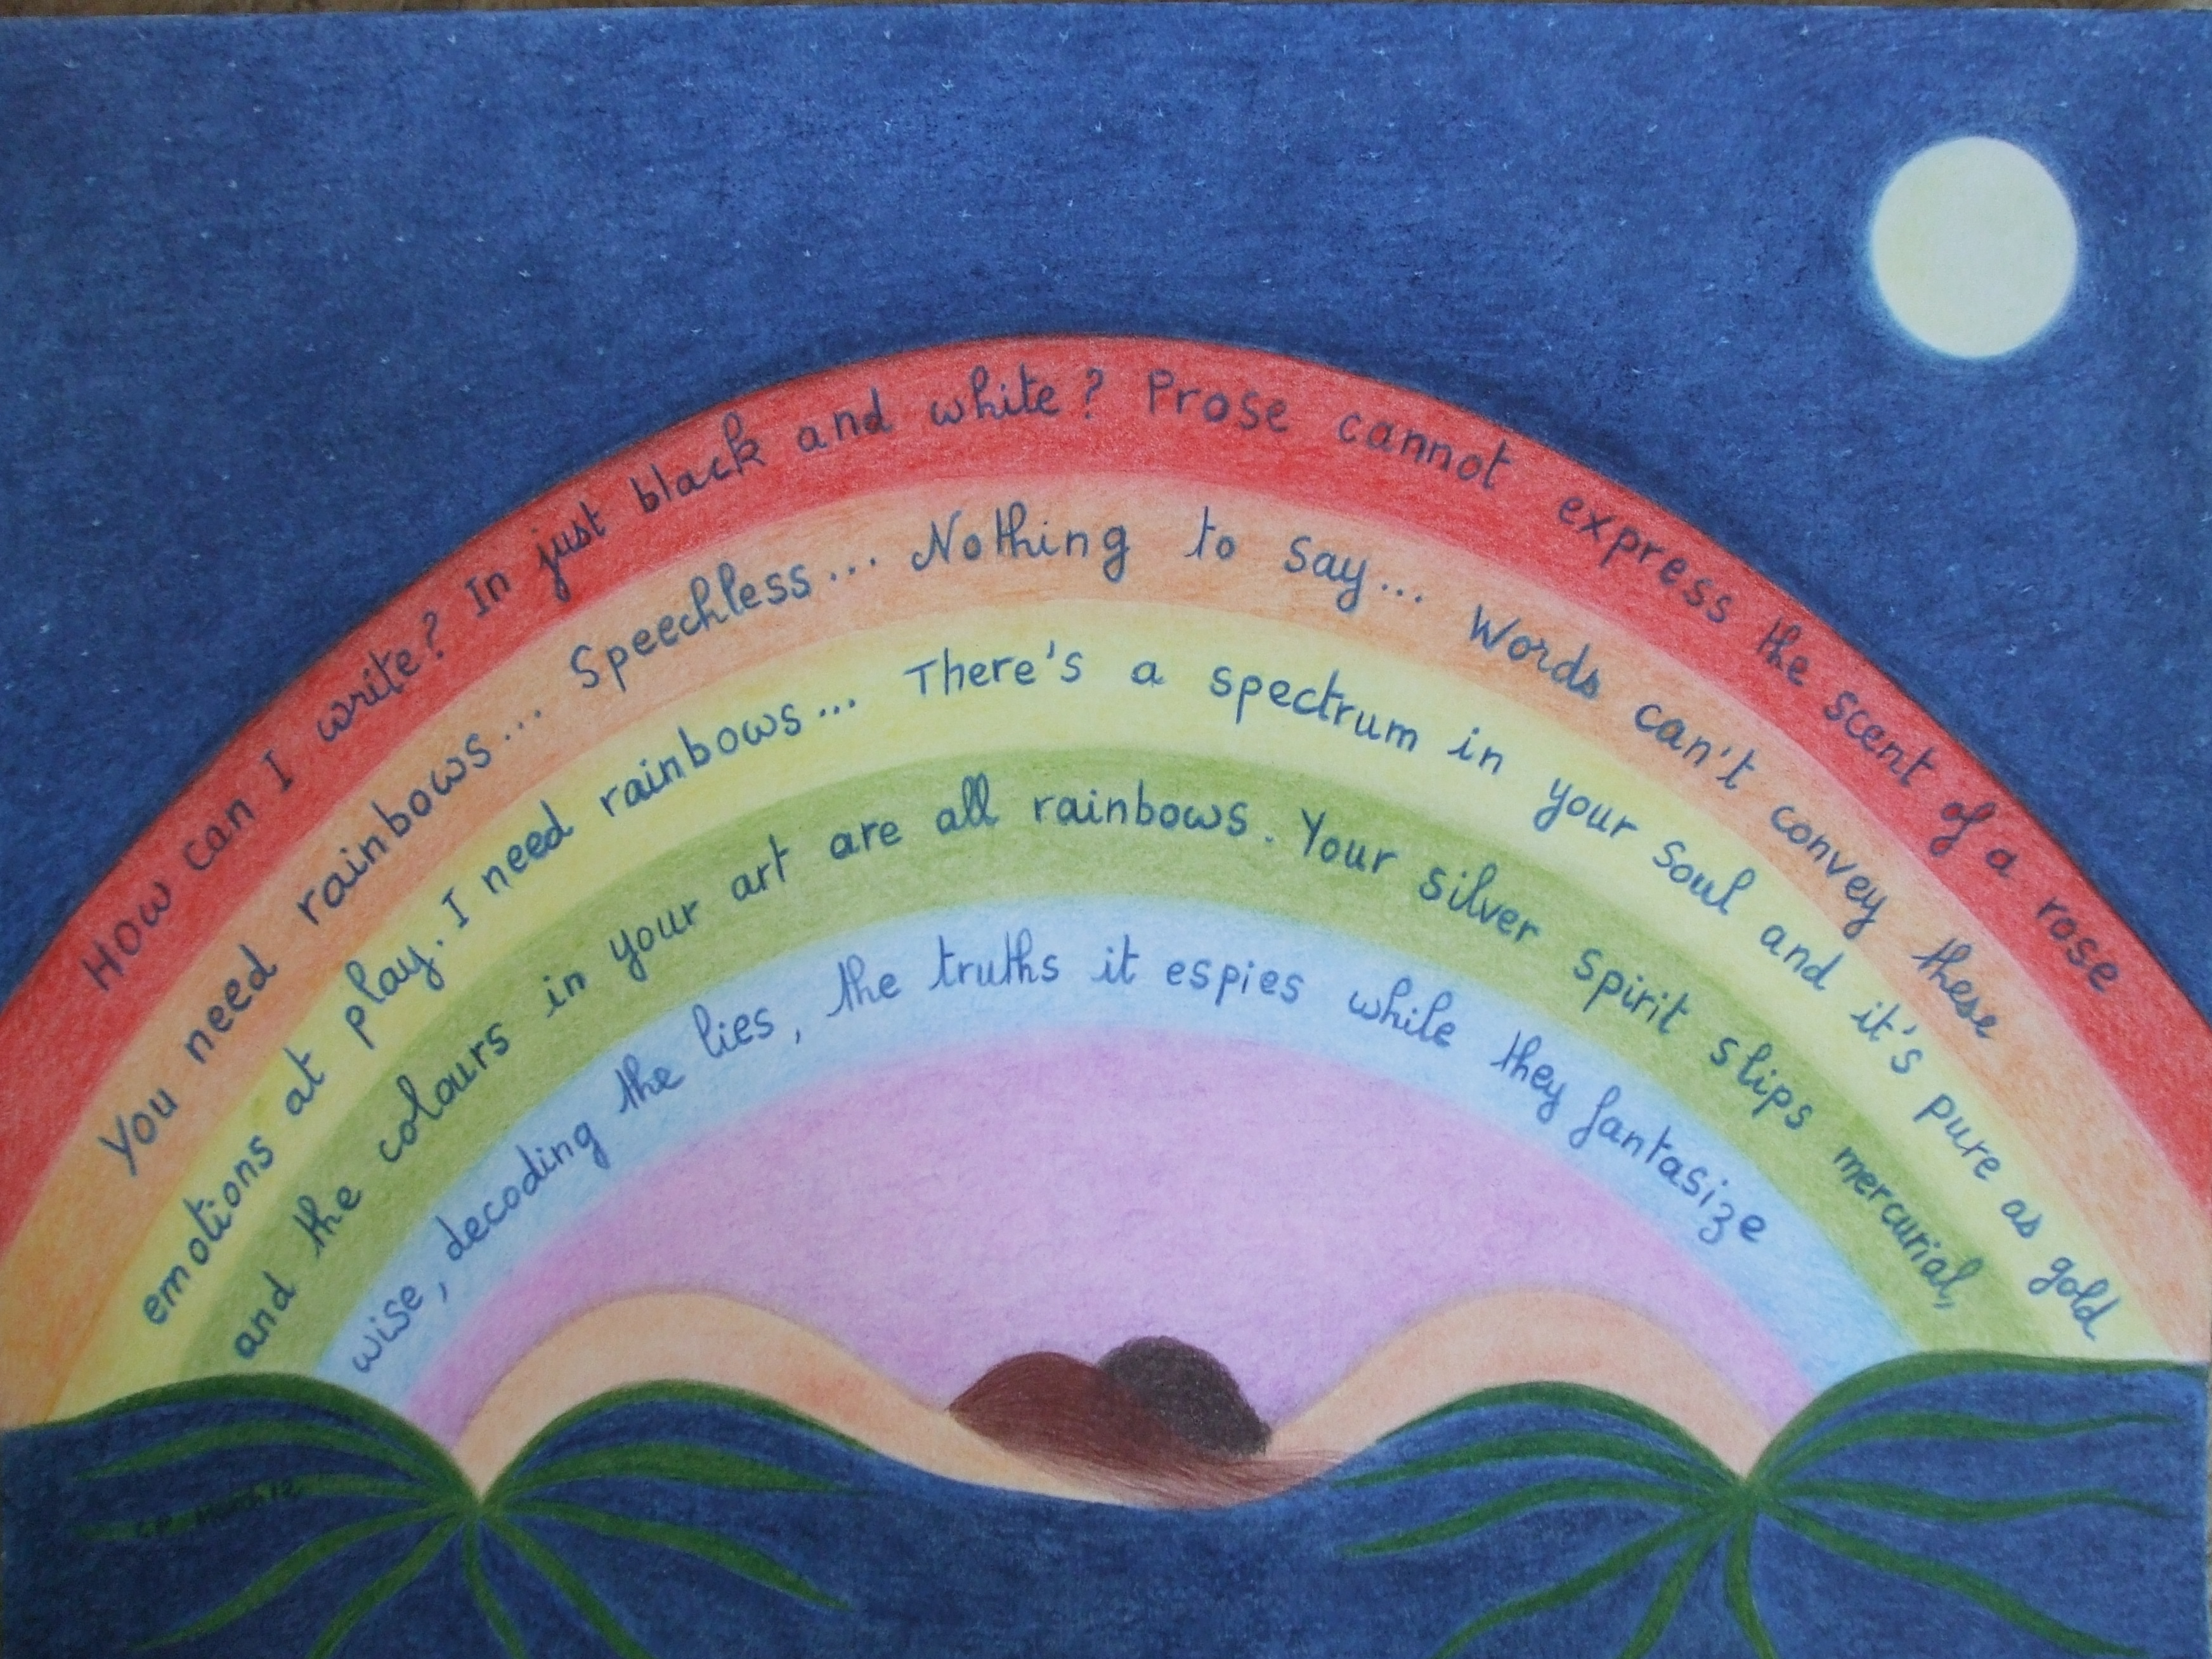 How can I write? In just black and white? Prose cannot express the scent of a rose
You need rainbows... Speechless... Nothing to say... Words can't convey these
emotions at play. I need rainbows... There's a spectrum in your soul and it's pure as gold
and the colours in your art are all rainbows. Your silver spirit slips mercurial,
wise, decoding the lies, the truths it espies while they fantasize
March 12